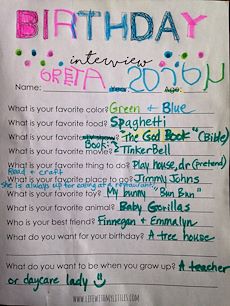 BIRTHDAY
interview
GRETA 2014
Name: Age:
What is your favorite color? Green + Blue
What is your favorite food? Spaghetti
What is your favorite The God Book (Bible)
Book:
What is your favorite movie? TinkerBell
What is your favorite thing to do? Play house, dr (pretend)
Read + craft
What is your favorite place to go? Jimmy Johns
She is always up for eating at a restaurant.
What is your favorite toy? My bunny "Bun Bun"
What is your favorite animal? Baby Gorillas
Who is your best friend? Finnegan + Emmalyn
What do you want for your birthday? A tree house
What do you want to be when you grow up? A teacher
or daycare lady
WWW.LIFEWITHMYLITTLES.COM